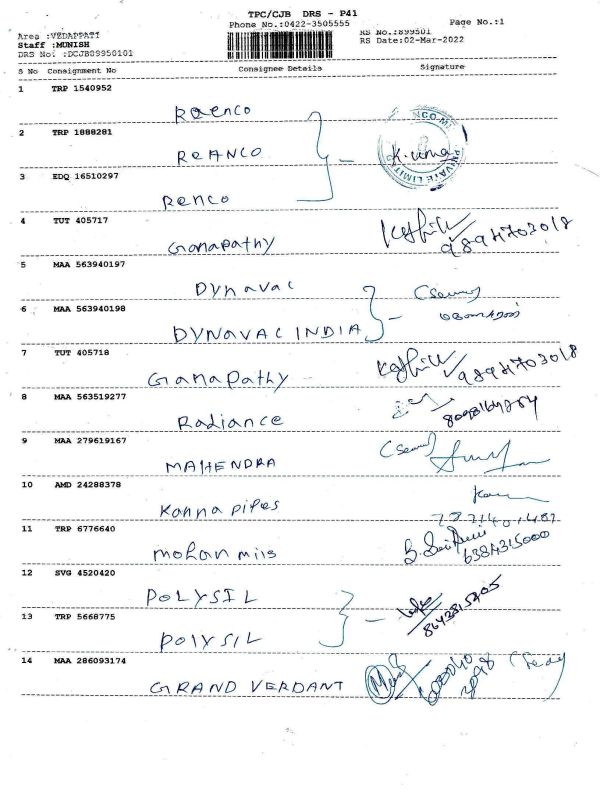 TPC/CJB DRS - P41
Phone No.:0422-3505555 Page No.:1
Area :VEDAPPATI RS No.:899501
Staff :MUNISH RS Date:02-Mar-2022
DRS No. :DCJB09950101
S No Consignment No Consignee Details Signature
1 TRP 1540952
Raenco
2 TRP 1888281
REANCO K.uma
PRIVATE LIMIT
3 EDQ 16510297
Renco
4 TUT 405717
Ganapathy 9894703018
5 MAA 563940197
Dynavac
6 MAA 563940198
DYNAVAC INDIA
7 TUT 405718
Ganapathy 9894703018
8 MAA 563519277
Radiance
9 MAA 279619167
MAHENDRA
10 AMD 24288378
Kanna pipes
11 TRP 6776640
mohan mils 6384315000
12 SVG 4520420
POLYSIL
13 TRP 5668775
POLYSIL
14 MAA 286093174
GRAND VERDANT